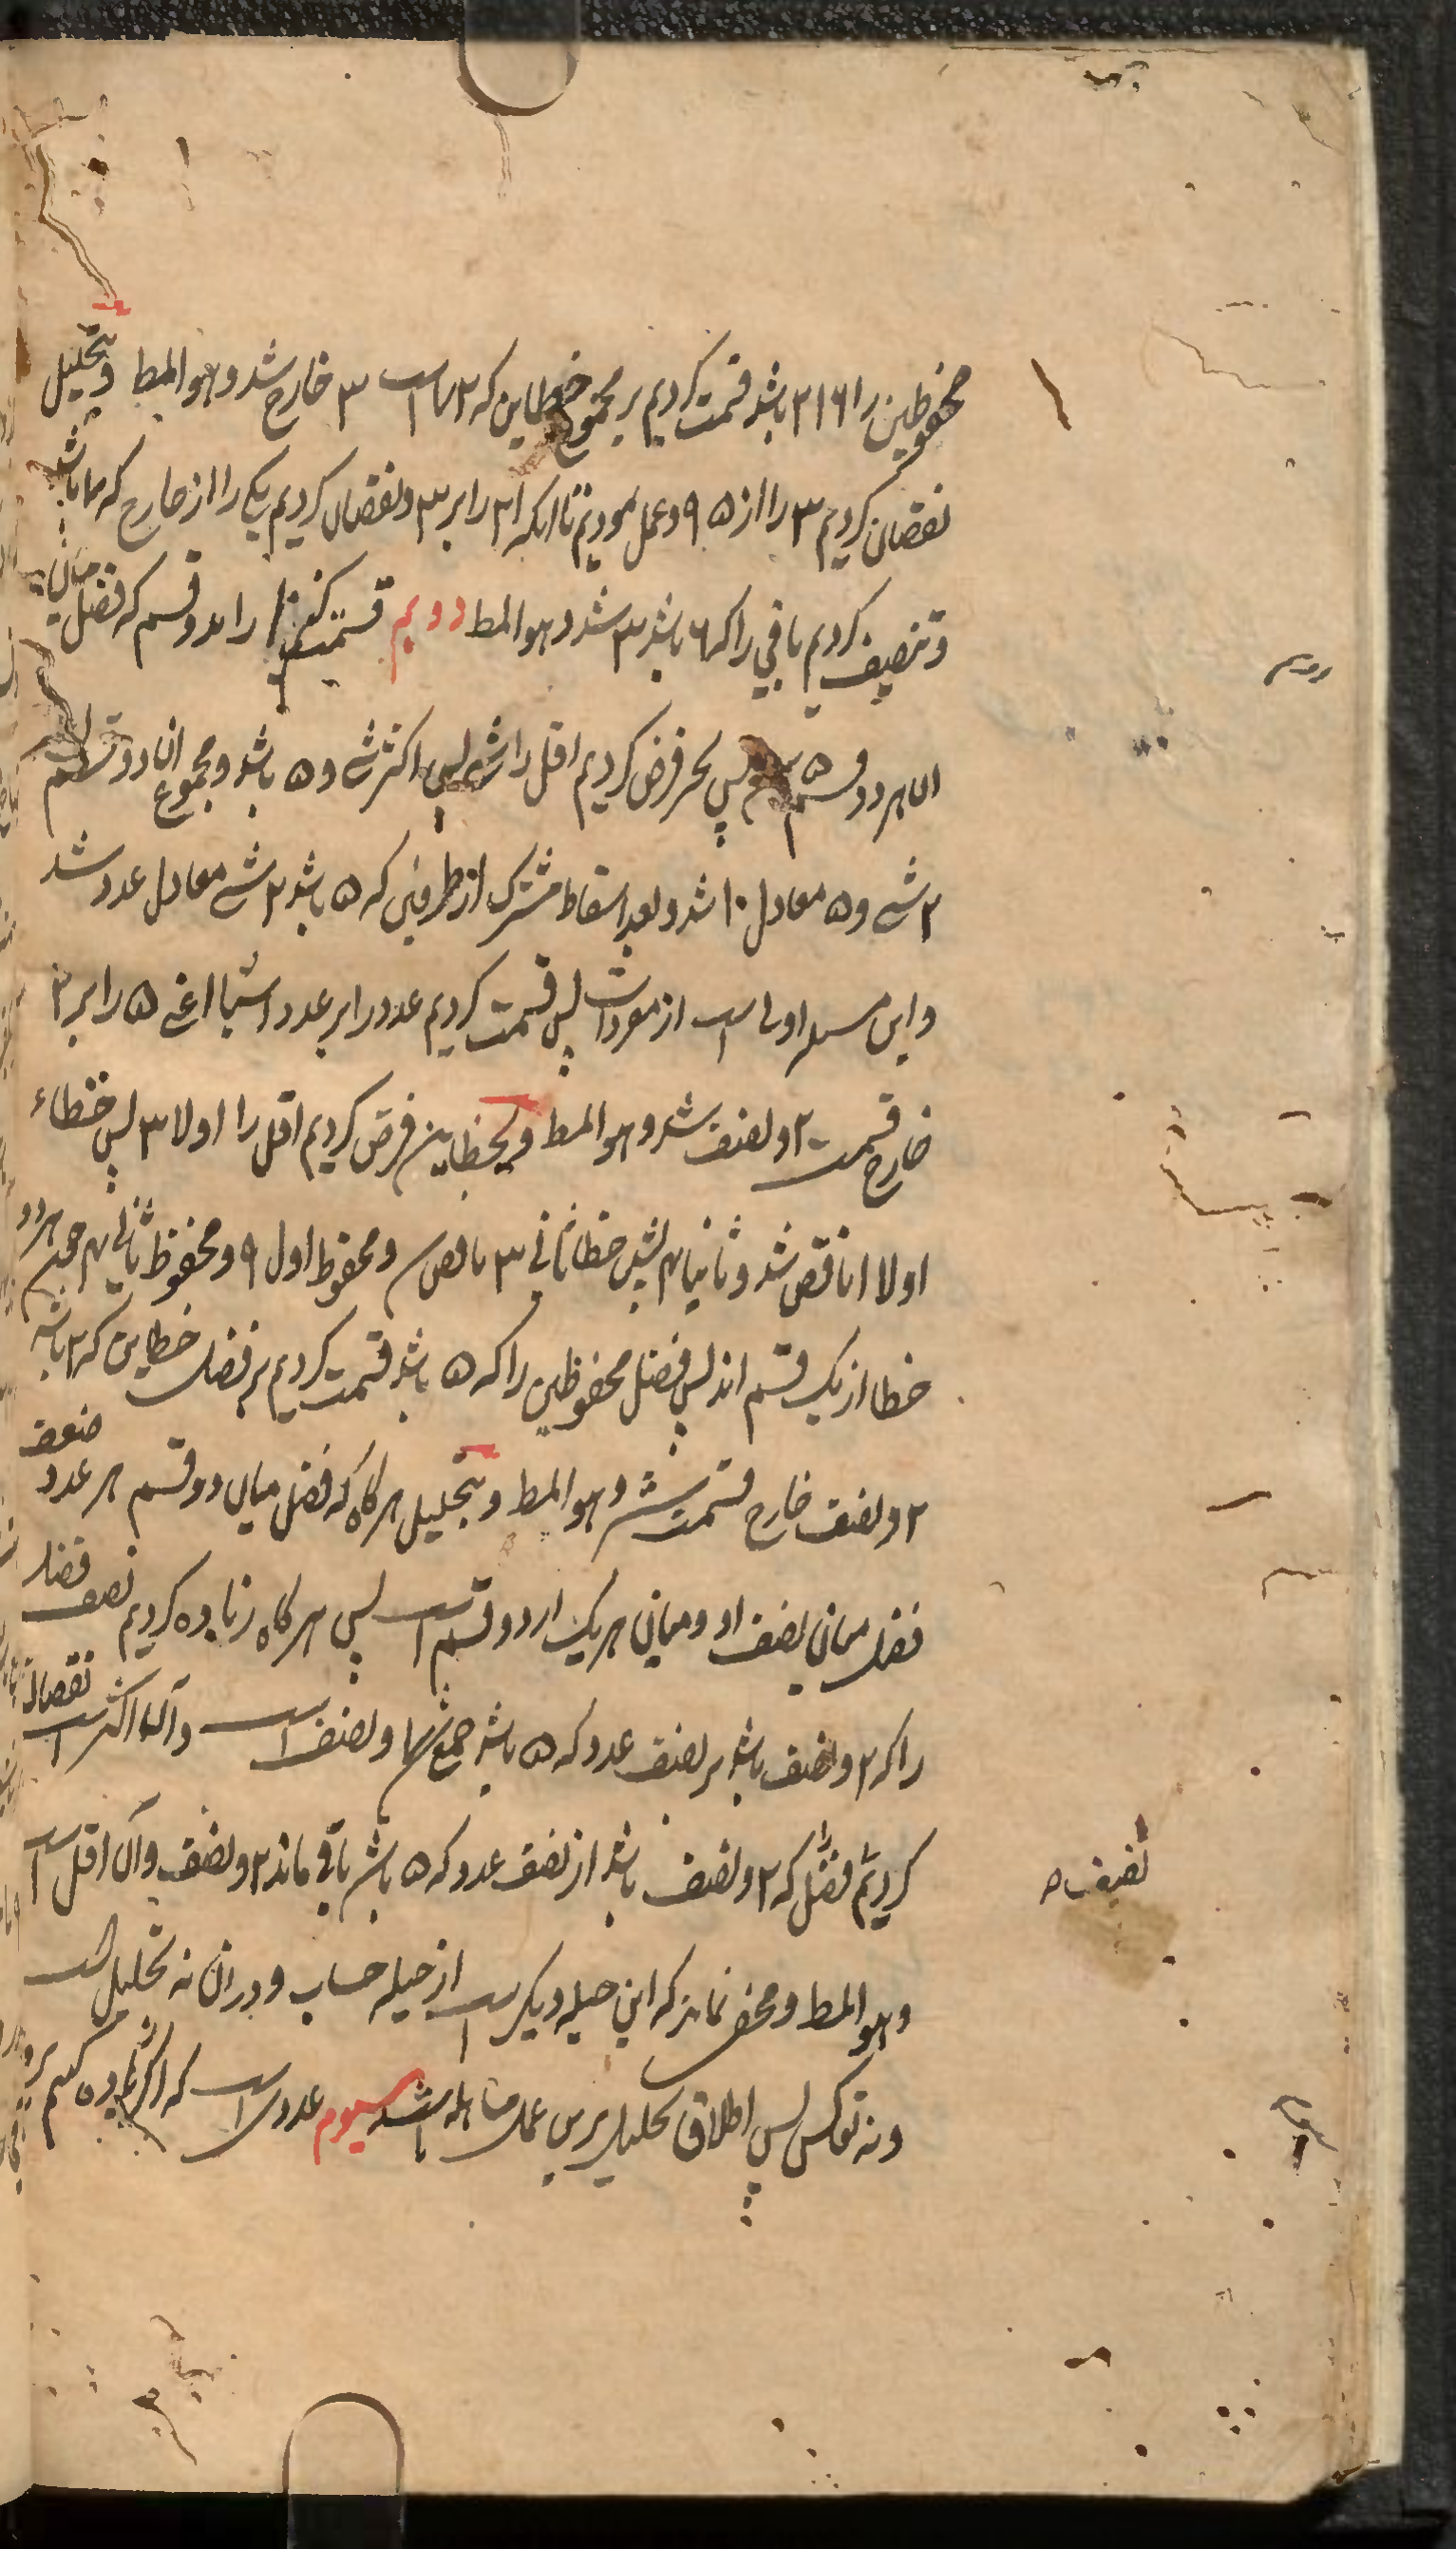 محفوظین را ۲۱۶ باشد قسمت کردیم بر مجموع خطاین که ۷۲ است ۳ خارج شد وهو المط وبتحلیل
نقصان کردیم ۳ را از ۹۵ وعمل نمودیم تا آنکه ۲۱ را بر ۳ ونقصان کردیم یک را از خارج که ۷ باشد
وتنصیف کردیم باقی را که ۶ باشد ۳ شد وهو المط دویم قسمت کنیم ۱۰ را بدو قسم که فضل میان
آن هر دو قسم ۵ پس بجبر فرض کردیم اقل را شئ پس اکثر شئ و ۵ باشد ومجموع آن دو قسم
۲ شئ و ۵ معادل ۱۰ شد وبعد اسقاط مشترک از طرفین که ۵ باشد ۲ شئ معادل عدد شد
واین مسئله اولی است از مفردات پس قسمت کردیم عدد را بر عدد اشیا اعنی ۵ را بر ۲
خارج قسمت ۲ ونصف شد وهو المط وبخطاین فرض کردیم اقل را اولا ۳ پس خطاء
اولا ۱ ناقص شد وثانیا ۴ پس خطا ثانی ۳ ناقص ومحفوظ اول ۹ ومحفوظ ثانی ۴ چون هر دو
خطا از یک قسم اند پس فضل محفوظین را که ۵ باشد قسمت کردیم بر فضل خطاین که ۲ باشد
۲ ونصف خارج قسمت شد وهو المط وبتحلیل هر گاه که فضل میان دو قسم هر عدد ضعف
فضل میان نصف او ومیان هر یک از دو قسم است پس هر گاه زیاده کردیم نصف فضل
را که ۲ ونصف باشد بر نصف عدد که ۵ باشد جمع شد ۷ ونصف است وآن اکثر است نقصان
کردیم فضل را که ۲ ونصف باشد از نصف عدد که ۵ باشد باقی ماند ۲ ونصف وآن اقل است
نصف ص
وهو المط ومخفی نماند که این حیله دیگر است از حیله حساب ودر آن نه تحلیل است
ونه تعکس پس اطلاق تحلیل برین عمل مساهله باشد سیوم عددی است که اگر زیاده کنیم برو